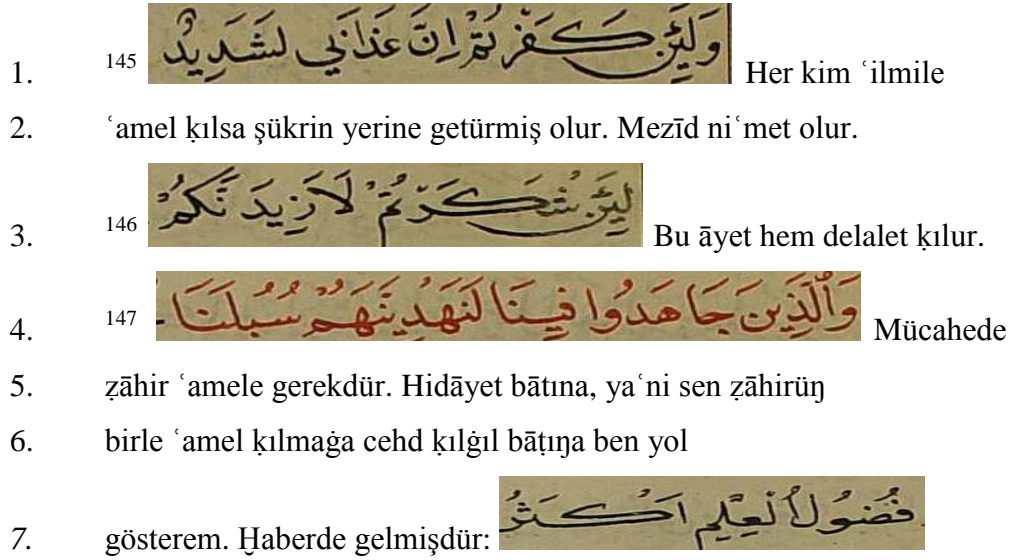 1. 145 وَلَئِنْ كَفَرْتُمْ اِنَّ عَذَابِي لَشَدِيدٌ Her kim ʿilmile
2. ʿamel ḳılsa şükrin yerine getürmiş olur. Mezīd niʿmet olur.
3. 146 لَئِنْ شَكَرْتُمْ لَاَزِيدَنَّكُمْ Bu āyet hem delalet ḳılur.
4. 147 وَالَّذِينَ جَاهَدُوا فِينَا لَنَهْدِيَنَّهُمْ سُبُلَنَا Mücahede
5. ẓāhir ʿamele gerekdür. Hidāyet bātına, yaʿni sen ẓāhirüŋ
6. birle ʿamel ḳılmaġa cehd ḳılġıl bāṭıŋa ben yol
7. gösterem. Ḫaberde gelmişdür: فُضُولُ الْعِلْمِ اَكْثَرُ